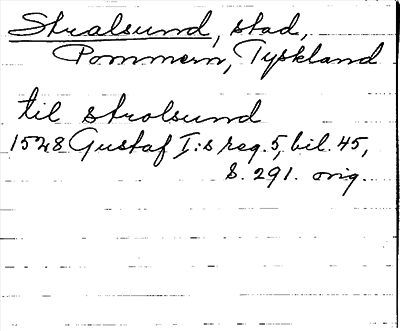 Stralsund, stad,
Pommern, Tyskland
til strolsund
1528 Gustaf I:s reg. 5, bil. 45,
s. 291. orig.